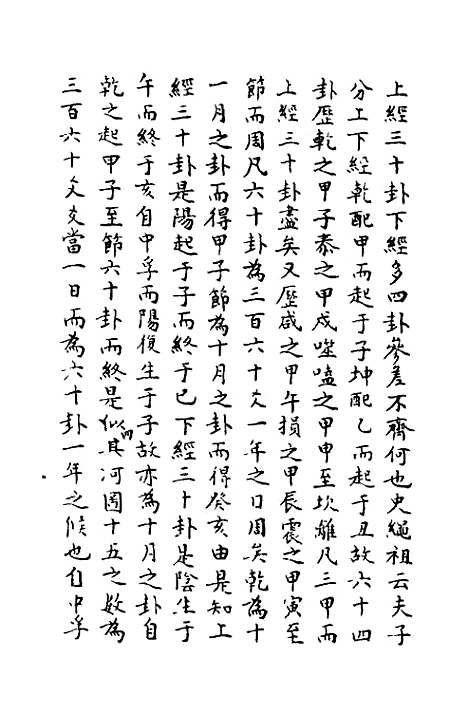 上經三十卦下經多四卦參差不齊何也史繩祖云夫子
分上下經乾配甲而起于子坤配乙而起于丑故六十四
卦歷乾之甲子泰之甲戍噬嗑之甲申至坎離凡三甲而
上經三十卦盡矣又歷咸之甲午損之甲辰震之甲寅至
節而周凡六十卦為三百六十爻一年之日周矣乾為十
一月之卦而得甲子節為十月之卦而得癸亥由是知上
經三十卦是陽起于子而終于已下經三十卦是陰生于
午而終于亥自中孚而陽復生于子故亦為十月之卦自
乾之起甲子至節六十卦而終是似其河圖十五之数為
三百六十爻爻當一日而為六十卦一年之候也自中孚